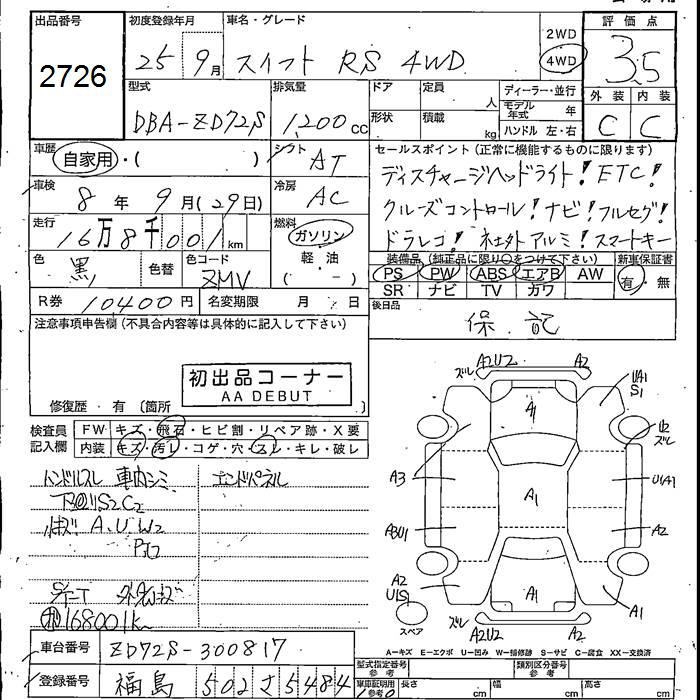 出品番号 初度登録年月 車名・グレード 2WD 評価点
2726 25 9月 スイフト RS 4WD 4WD 3.5
型式 排気量 ドア 定員 人 ディーラー・並行 外装 内装
DBA-ZD72S 1200cc 形状 積載 kg モデル年式 年 C C
ハンドル 左・右
車歴 自家用・( ) シフト AT セールスポイント(正常に機能するものに限ります)
車検 8年 9月(29日) 冷房 AC ディスチャージヘッドライト! ETC!
走行 16万8千001km 燃料 ガソリン クルーズコントロール! ナビ! フルセグ!
軽・油 ドラレコ! 社外アルミ! スマートキー
色 黒 色替 色コード ZMV ( - ) 装備品(純正品に限り○をつけて下さい) 新車保証書
PS PW ABS エアB AW 有・無
R券 10400円 名変期限 月 日 SR ナビ TV カワ
注意事項申告欄(不具合内容等は具体的に記入して下さい) 後日品
保.記
初出品コーナー
AA DEBUT
修復歴・有〔箇所 〕
検査員 FW キズ・飛石・ヒビ割・リペア跡・X要
記入欄 内装 キズ・汚レ・コゲ・穴・スレ・キレ・破レ
ハンドルスレ 車内シミ エンドパネル
S2C2
A.U.W2
168001k
ズレ A2U2 A2
A1 UA1
S1
U2
ズレ
A3 A1 U1A1
A3U1 A2
A2
U1S1 A1 A1
スペア ズレ A2U2 A2
A−キズ E−エクボ U−凹み W−補修跡 S−サビ C−腐食 XX−交換済
車台番号 ZD72S-300817
型式指定番号 参考 類別区分番号 参考
登録番号 福島 502 さ 5484
車庫証明用 参考 長さ cm 幅 cm 高さ cm